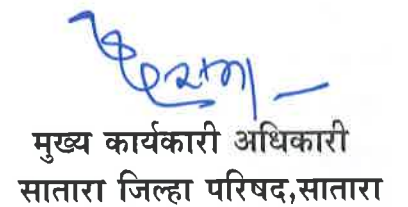 मुख्य कार्यकारी अधिकारी
सातारा जिल्हा परिषद,सातारा